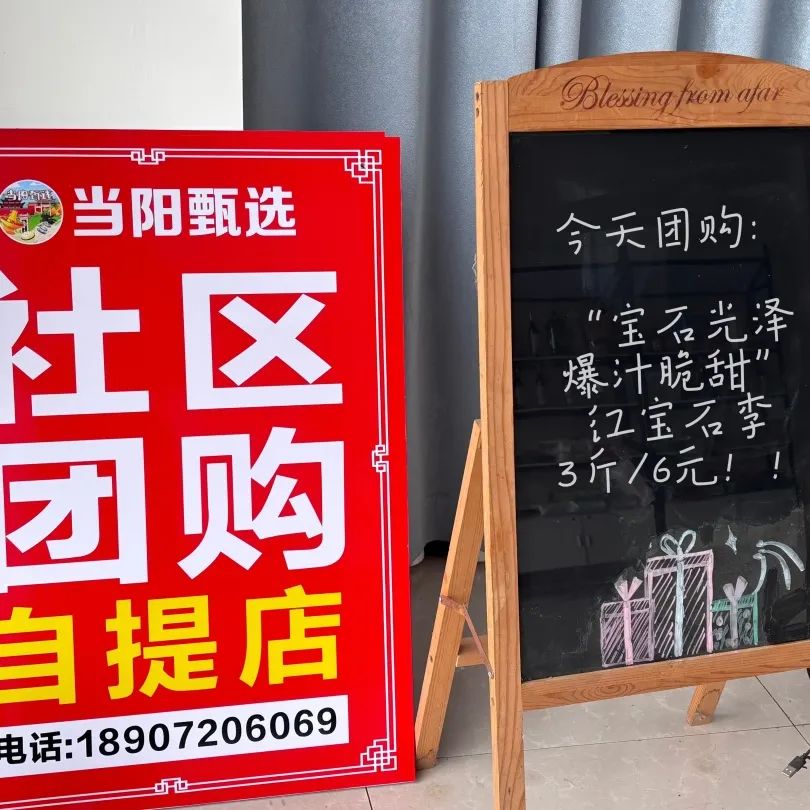 当阳甄选
当阳甄选
社区
团购
自提店
电话:18907206069
Blessing from afar
今天团购:
“宝石光泽
爆汁脆甜”
红宝石李
3斤/6元!!